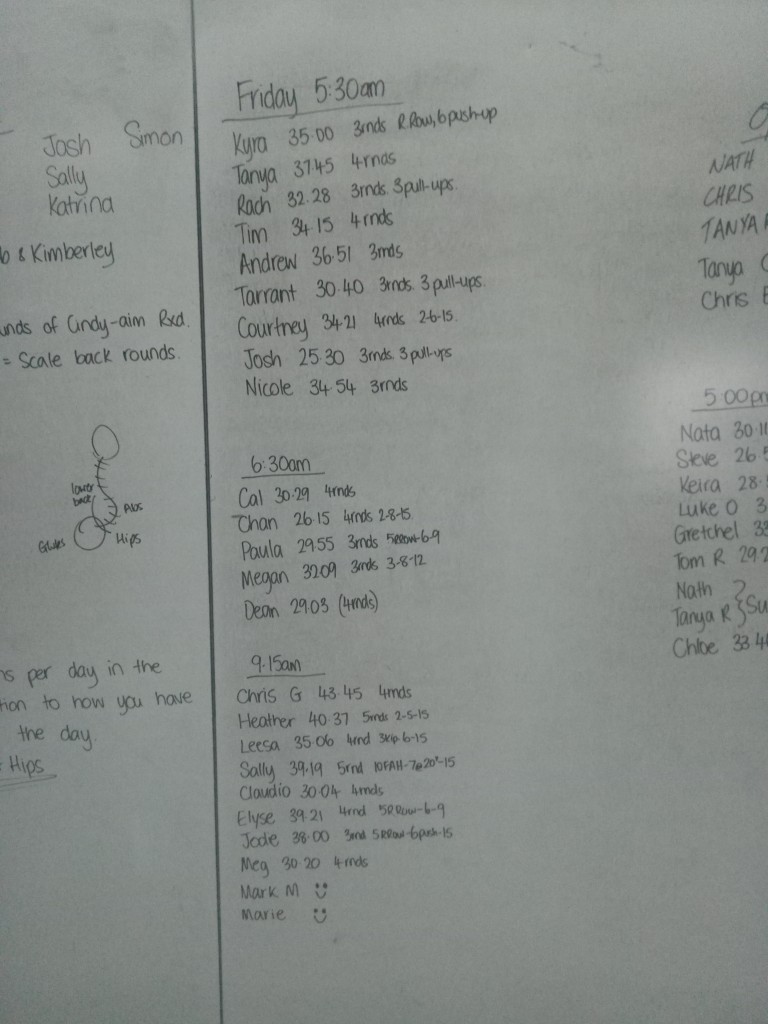 Josh Simon
Sally
Katrina
& Kimberley
of Cindy-aim Rxd.
= Scale back rounds.
lower
back
Abs
Glutes
Hips
per day in the
to how you have
the day.
Hips
Friday 5:30am
Kyra 35:00 3rnds R.Row, 6 push-up
Tanya 37.45 4rnds
Rach 32.28 3rnds. 3 pull-ups.
Tim 34.15 4rnds
Andrew 36.51 3rnds
Tarrant 30.40 3rnds. 3 pull-ups.
Courtney 34.21 4rnds 2-6-15.
Josh 25.30 3rnds. 3 pull-ups
Nicole 34.54 3rnds
6:30am
Cal 30.29 4rnds
Chan 26.15 4rnds 2-8-15.
Paula 29.55 3rnds 5RRow-6-9
Megan 32.09 3rnds 3-8-12
Dean 29.03 (4rnds)
9.15am
Chris G 43.45 4rnds
Heather 40.37 5rnds 2-5-15
Leesa 35.06 4rnd 3kip-6-15
Sally 39.19 5rnd 10FAH-7@20"-15
Claudio 30.04 4rnds
Elyse 39.21 4rnd 5R.Row-6-9
Jode 38.00 3rnd 5RRow-6push-15
Meg 30.20 4rnds
Mark M
Marie
NATH
CHRIS
TANYA
Tanya
Chris
5:00pm
Nata 30.11
Steve 26.
Keira 28.
Luke O 3
Gretchel 33
Tom R 29.2
Nath
Tanya R } Su
Chloe 33.4